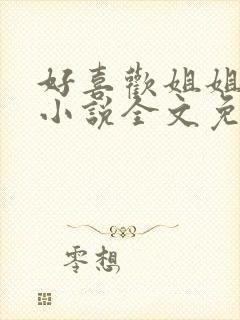 好喜歡姐姐
小說全文免
零想